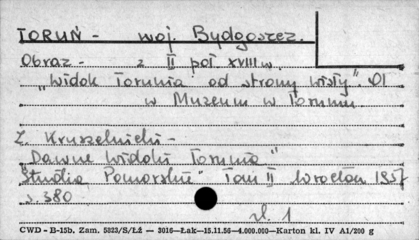 TORUŃ - woj. Bydgoszcz.
Obraz - z II poł. XVIII w.
"Widok Torunia od strony Wisły".
w Muzeum w Toruniu
Z. Kruszelnicki -
"Dawne widoki Torunia"
Studia Pomorskie Tom II Wrocław 1957
s. 380
il. 1
CWD - B-15b. Zam. 5823/S/Łź — 3016—Łak—15.11.56—4.000.000—Karton kl. IV A1/200 g